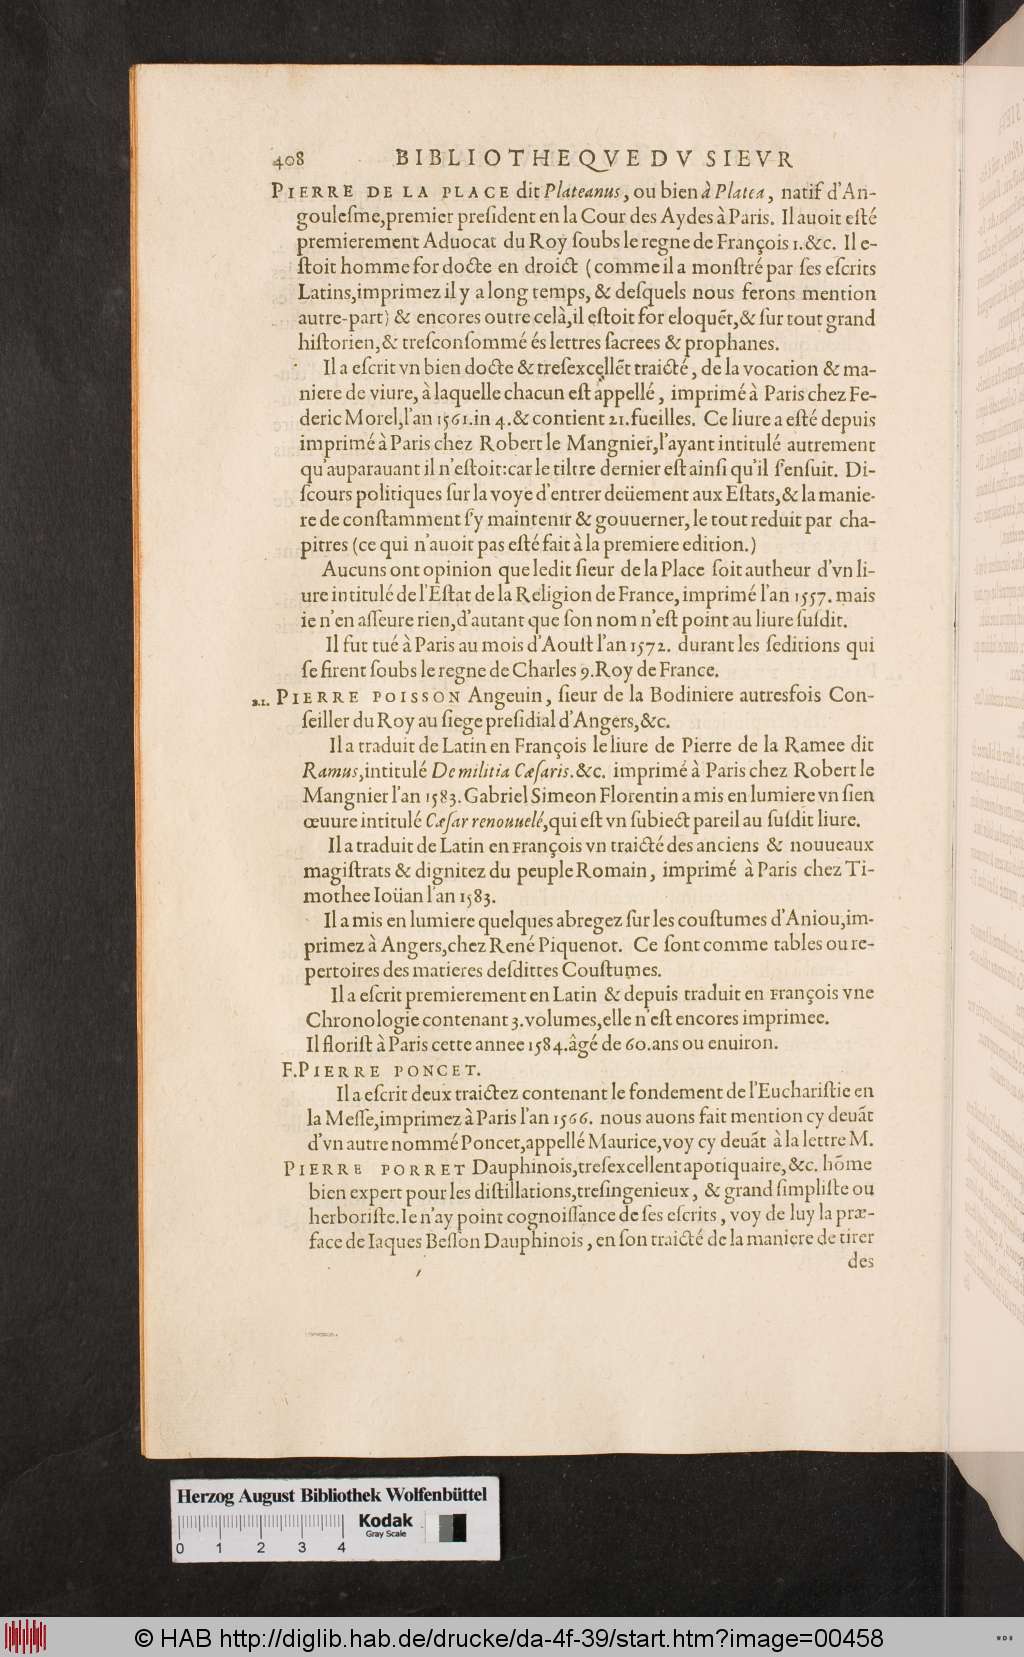 408 BIBLIOTHEQVE DV SIEVR
PIERRE DE LA PLACE dit Plateanus, ou bien à Platea, natif d'An-
goulesme,premier president en la Cour des Aydes à Paris. Il auoit esté
premierement Aduocat du Roy soubs le regne de François 1.&c. Il e-
stoit homme for docte en droict (comme il a monstré par ses escrits
Latins,imprimez il y a long temps, & desquels nous ferons mention
autre-part) & encores outre celà,il estoit for eloquēt,& sur tout grand
historien,& tresconsommé és lettres sacrees & prophanes.
Il a escrit vn bien docte & tresexcellēt traicté, de la vocation & ma-
niere de viure, à laquelle chacun est appellé, imprimé à Paris chez Fe-
deric Morel,l'an 1561.in 4.& contient 21.fueilles. Ce liure a esté depuis
imprimé à Paris chez Robert le Mangnier,l'ayant intitulé autrement
qu'auparauant il n'estoit:car le tiltre dernier est ainsi qu'il s'ensuit. Di-
scours politiques sur la voye d'entrer deüement aux Estats,& la manie-
re de constamment s'y maintenir & gouuerner, le tout reduit par cha-
pitres (ce qui n'auoit pas esté fait à la premiere edition.)
Aucuns ont opinion que ledit sieur de la Place soit autheur d'vn li-
ure intitulé de l'Estat de la Religion de France, imprimé l'an 1557. mais
ie n'en asseure rien,d'autant que son nom n'est point au liure susdit.
Il fut tué à Paris au mois d'Aoust l'an 1572. durant les seditions qui
se firent soubs le regne de Charles 9.Roy de France.
21. PIERRE POISSON Angeuin, sieur de la Bodiniere autresfois Con-
seiller du Roy au siege presidial d'Angers,&c.
Il a traduit de Latin en François le liure de Pierre de la Ramee dit
Ramus,intitulé De militia Cæsaris.&c. imprimé à Paris chez Robert le
Mangnier l'an 1583. Gabriel Simeon Florentin a mis en lumiere vn sien
œuure intitulé Cæsar renouuelé,qui est vn subiect pareil au susdit liure.
Il a traduit de Latin en François vn traicté des anciens & nouueaux
magistrats & dignitez du peuple Romain, imprimé à Paris chez Ti-
mothee Ioüan l'an 1583.
Il a mis en lumiere quelques abregez sur les coustumes d'Aniou,im-
primez à Angers,chez René Piquenot. Ce sont comme tables ou re-
pertoires des matieres desdittes Coustumes.
Il a escrit premierement en Latin & depuis traduit en François vne
Chronologie contenant 3.volumes,elle n'est encores imprimee.
Il florist à Paris cette annee 1584.âgé de 60.ans ou enuiron.
F.PIERRE PONCET.
Il a escrit deux traictez contenant le fondement de l'Eucharistie en
la Messe,imprimez à Paris l'an 1566. nous auons fait mention cy deuāt
d'vn autre nommé Poncet,appellé Maurice,voy cy deuāt à la lettre M.
PIERRE PORRET Dauphinois,tresexcellent apotiquaire,&c. hōme
bien expert pour les distillations,tresingenieux, & grand simpliste ou
herboriste.Ie n'ay point cognoissance de ses escrits, voy de luy la præ-
face de Iaques Besson Dauphinois, en son traicté de la maniere de tirer
des
Herzog August Bibliothek Wolfenbüttel
Kodak
Gray Scale
0 1 2 3 4
© HAB http://diglib.hab.de/drucke/da-4f-39/start.htm?image=00458